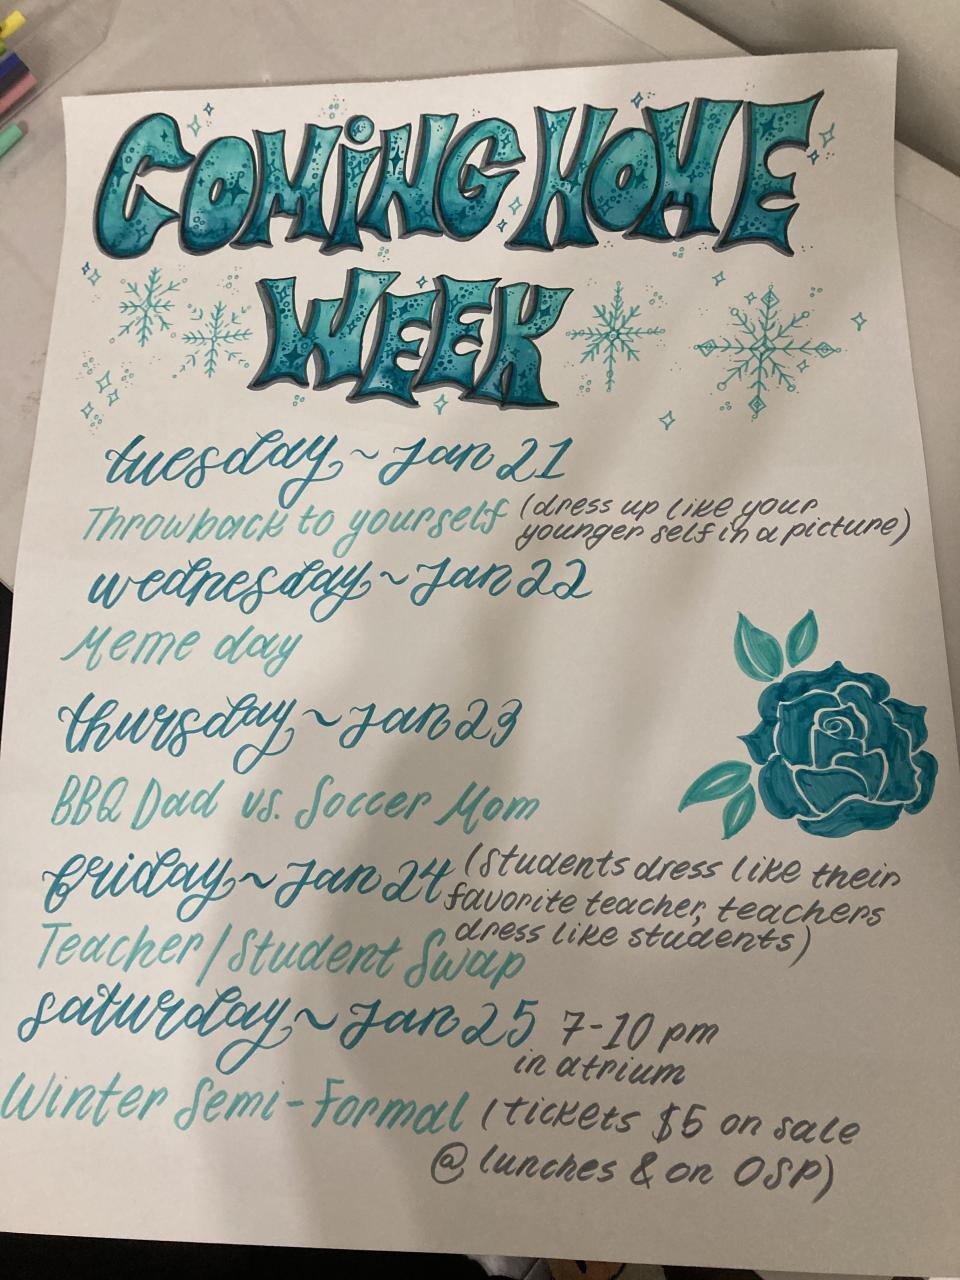 COMING HOME
WEEK
tuesday ~ Jan 21
Throwback to yourself (dress up like your
younger self in a picture)
wednesday ~ Jan 22
Meme day
thursday ~ Jan 23
BBQ Dad vs. Soccer Mom
friday ~ Jan 24 (Students dress like their
favorite teacher, teachers
dress like students)
Teacher/Student Swap
saturday ~ Jan 25 7-10 pm
in atrium
Winter Semi-Formal (tickets $5 on sale
@ lunches & on OSP)